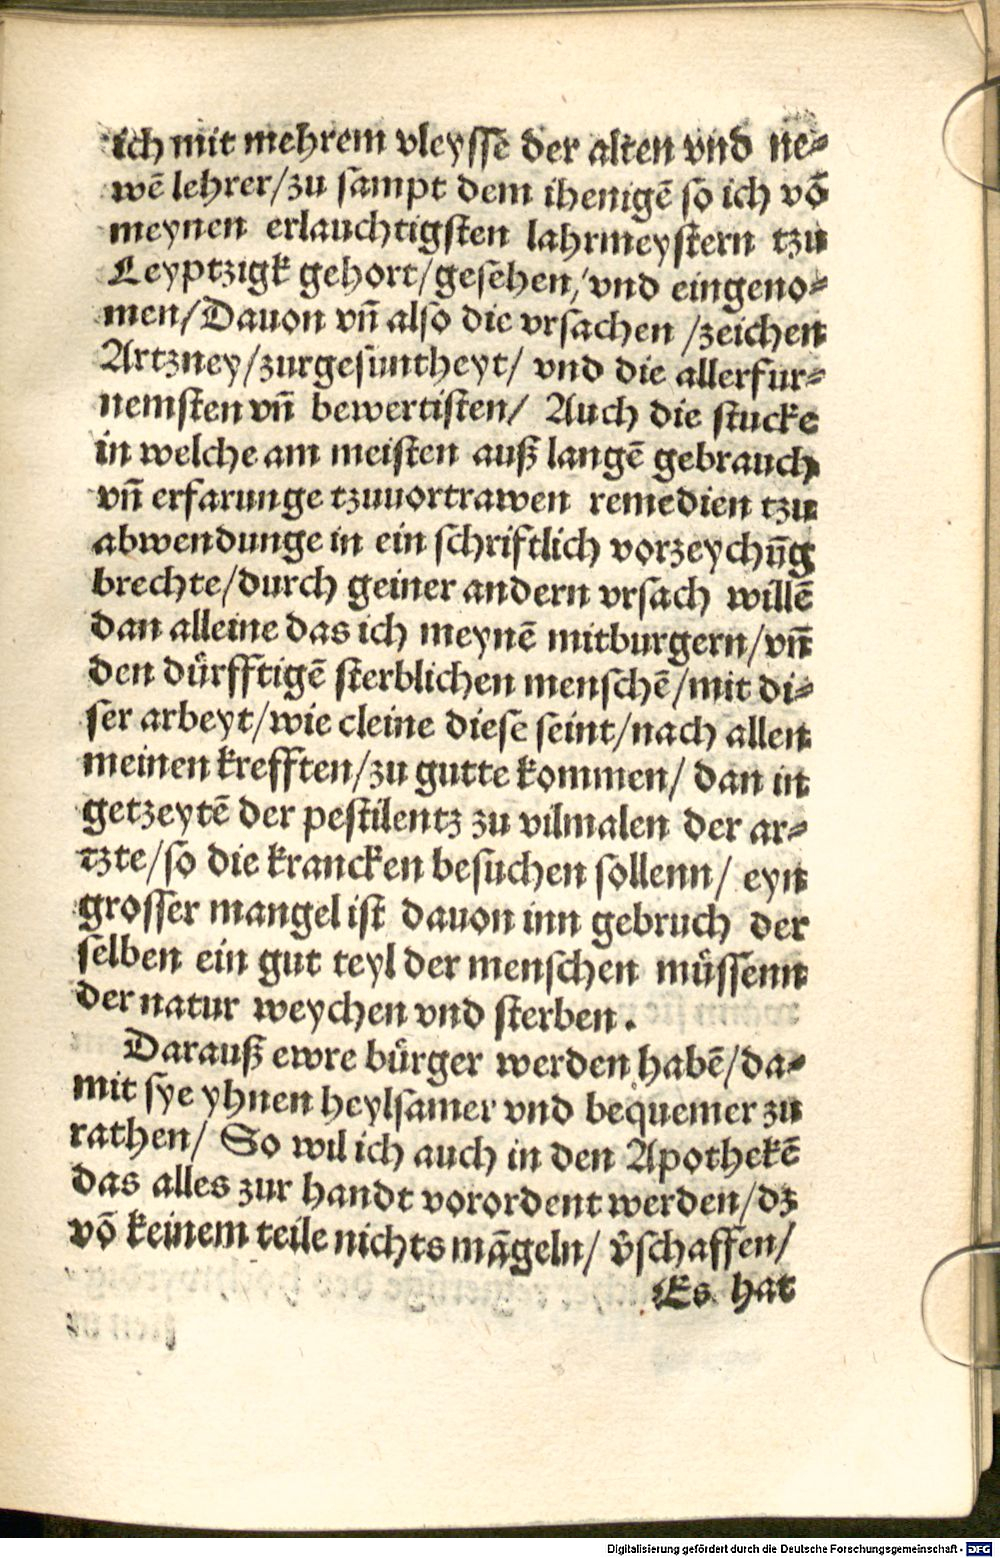 ich mit mehrem vleysse der alten vnd ne⸗
wē lehrer/zu sampt dem ihenigē so ich vō
meynen erlauchtigsten lahrmeystern tzu
Leyptzigk gehort/gesehen/vnd eingeno⸗
men/Dauon vn̄ also die vrsachen /zeichen
Artzney/zurgesuntheyt/ vnd die allerfur⸗
nemsten vn̄ bewertisten/ Auch die stucke
in welche am meisten auß langē gebrauch
vn̄ erfarunge tzuuortrawen remedien tzu
abwendunge in ein schriftlich vorzeychn̄g
brechte/durch geiner andern vrsach willē
dan alleine das ich meynē mitburgern/vn̄
den dürfftigē sterblichen menschē/mit di⸗
ser arbeyt/wie cleine diese seint/nach allen
meinen krefften/zu gutte kommen/ dan in
getzeytē der pestilentz zu vilmalen der ar⸗
tzte/so die krancken besuchen sollenn/ eyn
grosser mangel ist dauon inn gebruch der
selben ein gut teyl der menschen müssenn
der natur weychen vnd sterben.
Darauß ewre bürger werden habē/da⸗
mit sye yhnen heylsamer vnd bequemer zu
rathen/ So wil ich auch in den Apothekē
das alles zur handt vorordent werden/dz
vō keinem teile nichts māgeln/ v̄schaffen/
Es hat
Digitalisierung gefördert durch die Deutsche Forschungsgemeinschaft - DFG